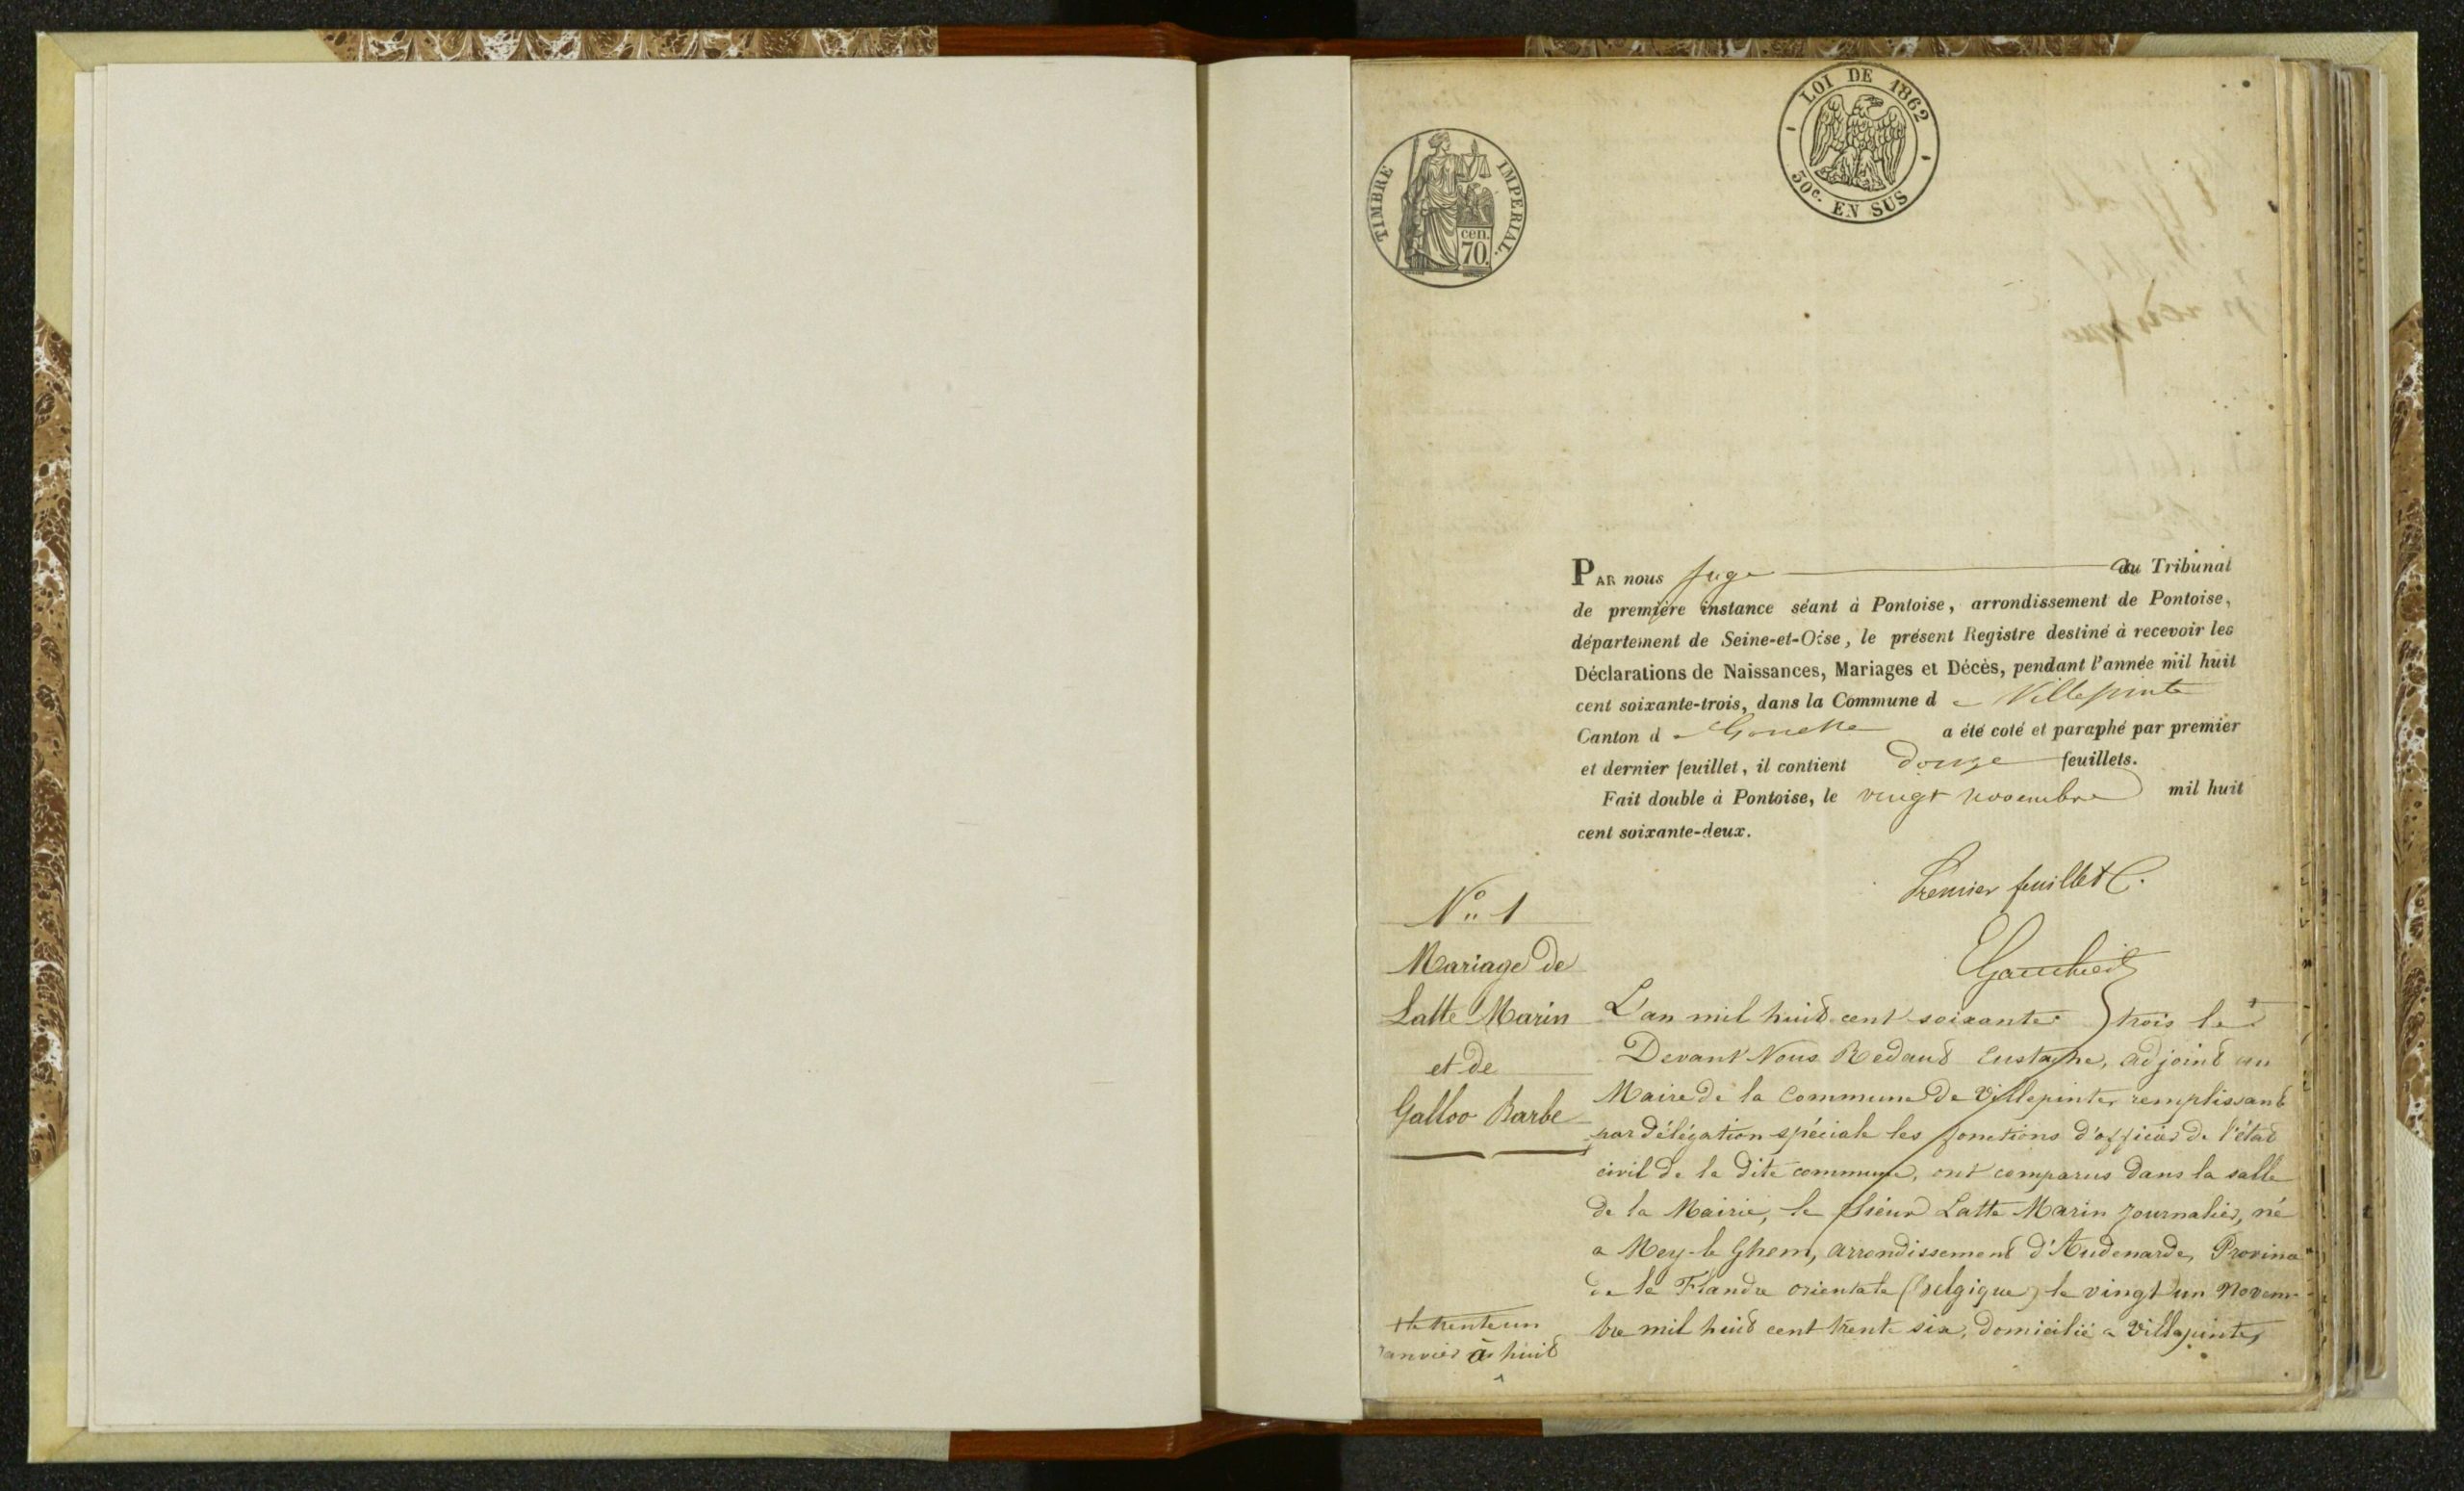 TIMBRE IMPERIAL.
cen.
70.
LOI DE 1862
50c. EN SUS
PAR nous Juge du Tribunal
de première instance séant à Pontoise, arrondissement de Pontoise,
département de Seine-et-Oise, le présent Registre destiné à recevoir les
Déclarations de Naissances, Mariages et Décès, pendant l'année mil huit
cent soixante-trois, dans la Commune de Villepinte
Canton de Gonesse a été coté et paraphé par premier
et dernier feuillet, il contient douze feuillets.
Fait double à Pontoise, le vingt novembre mil huit
cent soixante-deux.
Premier feuillet
No. 1
Mariage de
Latte Marin
et de
Galloo Barbe
L'an mil huit cent soixante trois le +
Devant Nous Redaud Eustache, adjoint au
Maire de la Commune de Villepinte, remplissant
par délégation spéciale les fonctions d'officier de l'état
civil de la dite commune, ont comparus dans la salle
de la Mairie, le Sieur Latte Marin journalier, né
a Mey-le Ghem, arrondissement d'Audenarde, Province
de la Flandre orientale (Belgique) le vingt un Novem-
bre mil huit cent trente six, domicilié a Villepinte,
+ le trente un
Janvier à huit